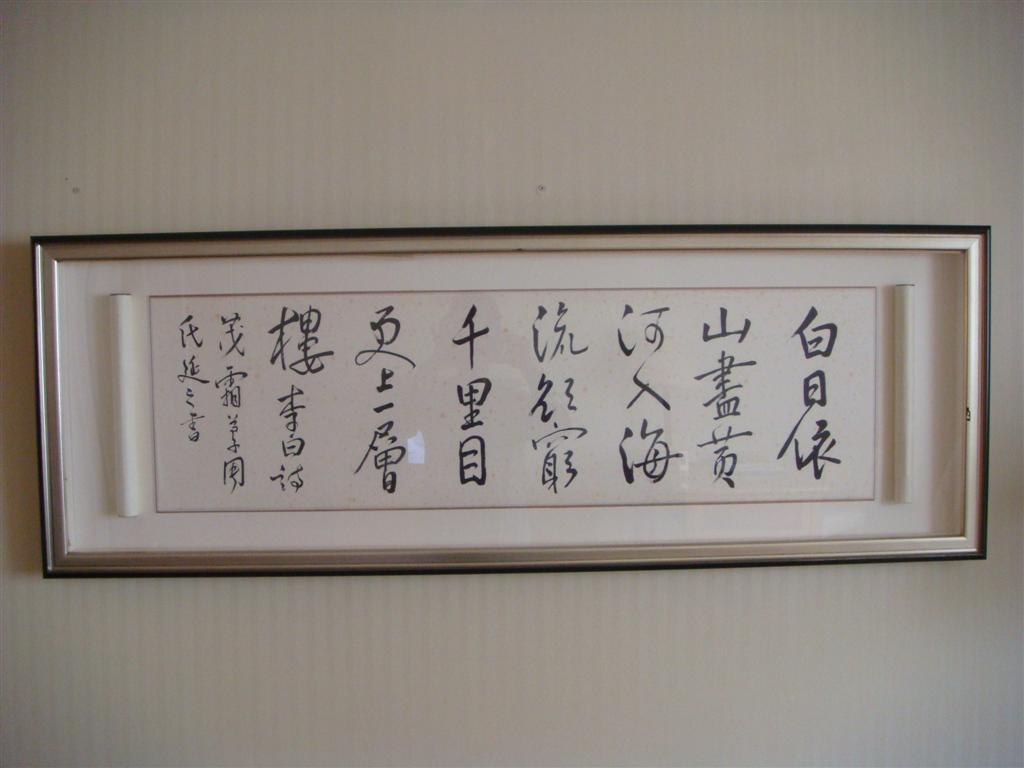 白日依
山盡黄
河入海
流欲窮
千里目
更上一層
樓李白詩
茂霜草閣
氏延之書